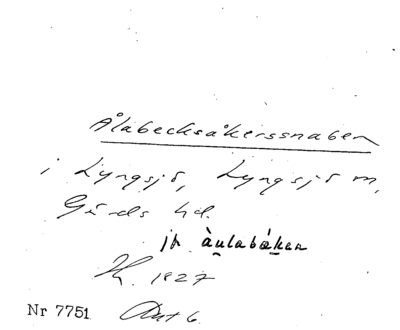 Ålabecksåkerssnaben
i Lyngsjö, Lyngsjö sn,
Gärds hd.
jfr àulabákan
1927
Nr 7751